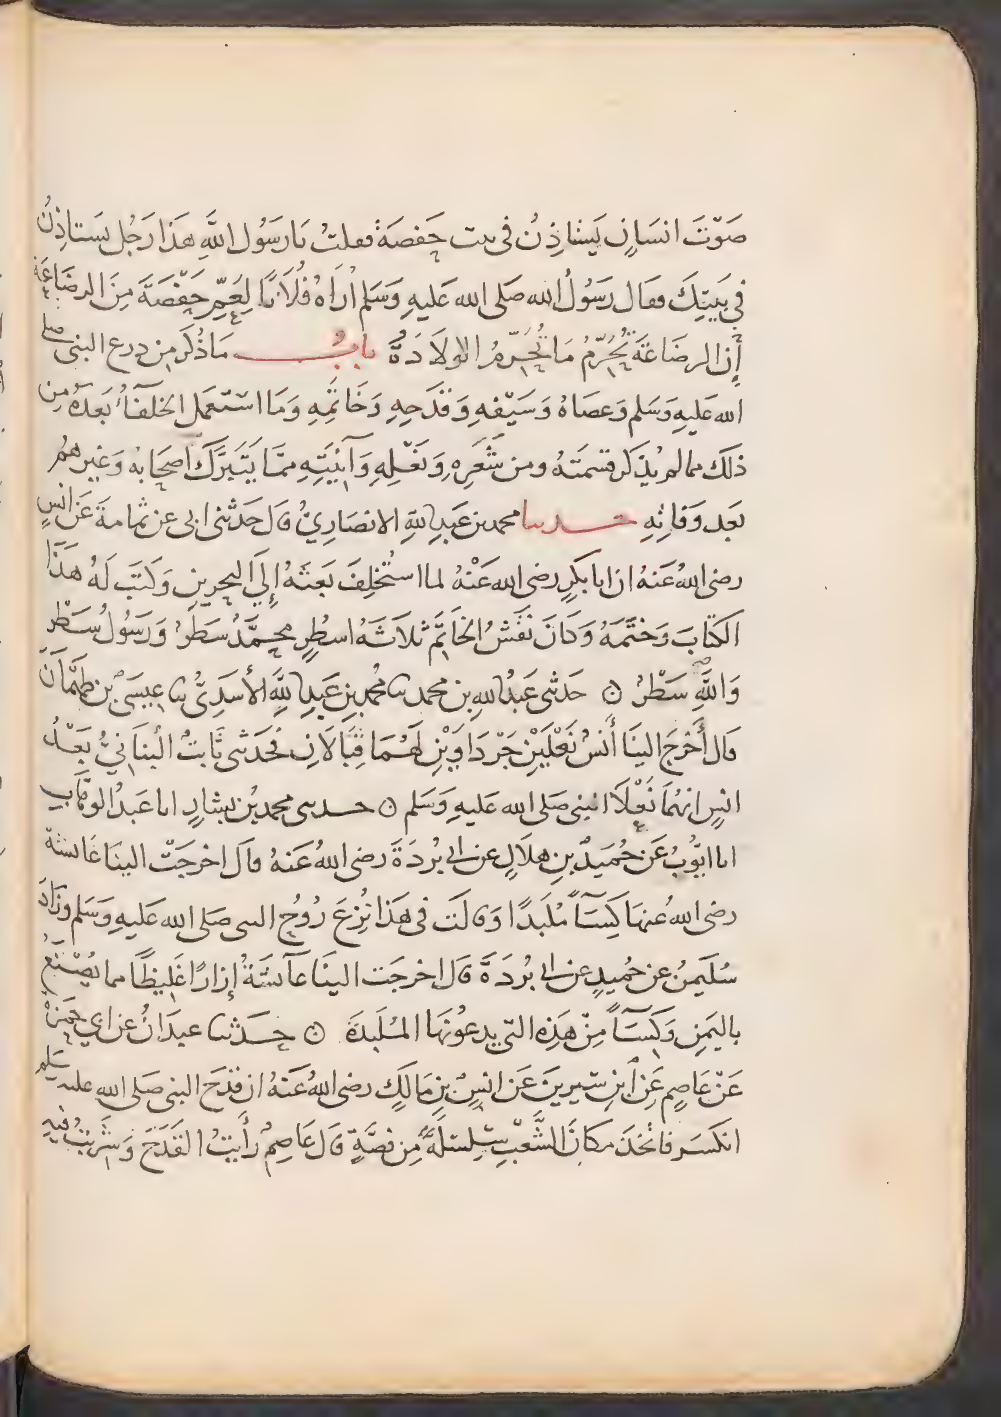 صَوْتَ انسَانٍ يَستاذِنُ فى بيت حَفصَةَ فقلتُ يَا رَسُول اللَّهِ هَذا رَجُل يستاذِنُ
فى بَيتِكَ فقال رَسُولُ الله صَلى الله عَليهِ وَسَلم اُرَاهُ فُلَانًا لِعَمِّ حَفْصَةَ مِنَ الرضَاعَة
إِن الرضَاعَةَ تُحَرِّمُ مَا تُحَرِّمُ الوِلَادَةُ بابُ مَا ذُكِرَ مِن دِرع النبى صلى
الله عَليهِ وَسَلم وَعصَاهُ وَسَيْفهِ وَقَدَحِهِ وَخَاتمِهِ وَمَا استَعمَل الخلفَآءُ بَعدَهُ مِن
ذلكَ مما لم يُذكَر قِسمَتهُ ومن شَعَرِهِ وَنَعْلِهِ وَآنِيَتِهِ ممَّا يَتَبَرَّكُ اصحَابه وَغيرهُم
بَعد وَفاتِهِ حدثنا محمد بن عَبدِ اللهِ الانصَارِىُّ قال حَدثنى ابى عن ثمامةَ عَن انسٍ
رضى اللهُ عَنهُ ان ابا بكرٍ رضى الله عَنْهُ لما استُخلِفَ بَعثهُ إِلَى البحرين وَكتَبَ لَهُ هَذَا
الكتابَ وَخَتمَهُ وَكانَ نَقشُ الخاتم ثلاثَةَ اسطُرٍ محمَّدُ سَطرُ وَرَسُولُ سَطْر
وَاللَّهِ سَطْرُ ۞ حَدثنى عَبدُ اللهِ بن محمد ثنا محمد بن عَبدِ اللَّهِ الأسَدِىُّ ثنا عيسَى بن طهمَانَ
قال أَخْرَجَ الينَا أَنسُ نَعْلَيْنِ جَرْدَاوَيْنِ لهُمَا قِبَالَانِ فَحَدثنى ثَابتُ البُنانِىُّ بَعْدُ
عن انسٍ انهُمَا نَعْلَا النبىِّ صَلى الله عَليهِ وَسَلم ۞ حدثنى محمد بن بشارٍ انا عَبدُ الوهَّابِ
انا ايُّوبُ عَن حُميَدِ بنِ هِلَالٍ عن ابى بُردَةَ رضى اللهُ عَنهُ قال اخرجَتْ الينَا عَائشة
رضى اللهُ عنهَا كِسَآءً مُلَبدًا وَقالَت فى هَذا نُزِعَ رُوحُ النبى صَلى الله عَليهِ وَسَلم وزَادَ
سُلَيمنُ عن حُميدٍ عن ابى بُردَةَ قال اخرجَت الينَا عَآئشَةُ إِزارًا غَليظًا مما يُصْنَعُ
باليَمنِ وَكِسَآءً مِّنْ هَذِهِ التى يدعُونَها المُلَبَدَة ۞ حدثنا عبدَانُ عن ابى حَمزَةَ
عَنْ عَاصِمٍ عَنِ ابنِ سِيرِينَ عَن انَسِ بنِ مَالكٍ رضى اللهُ عَنهُ ان قدَحَ النبى صَلى الله عليه وسلم
انكسَرَ فاتخذَ مكانَ الشَّعْبِ سِلسِلَةً مِن فضَّةٍ قال عَاصِمُ رأَيتُ القَدَحَ وَشَرِبتُ فيهِ